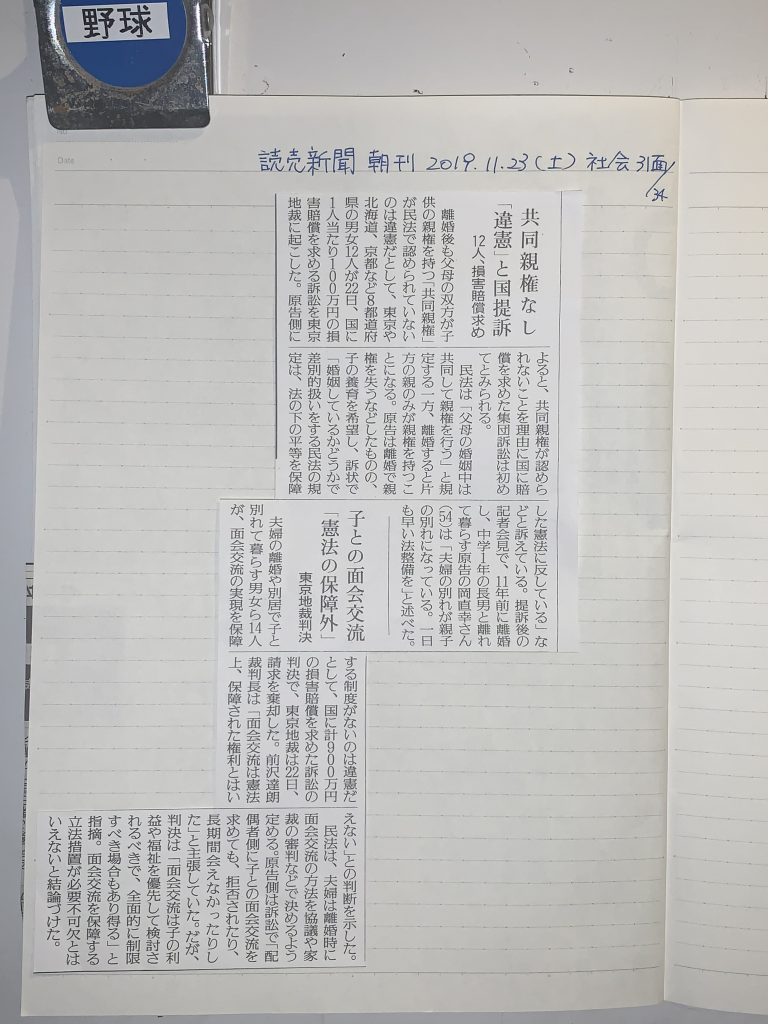 野球
Date
読売新聞 朝刊 2019.11.23(土) 社会 31面/34
共同親権なし
「違憲」と国提訴
12人、損害賠償求め
離婚後も父母の双方が子
供の親権を持つ「共同親権」
が民法で認められていない
のは違憲だとして、東京や
北海道、京都など8都道府
県の男女12人が22日、国に
1人当たり100万円の損
害賠償を求める訴訟を東京
地裁に起こした。原告側に
よると、共同親権が認めら
れないことを理由に国に賠
償を求めた集団訴訟は初め
てとみられる。
民法は「父母の婚姻中は
共同して親権を行う」と規
定する一方、離婚すると片
方の親のみが親権を持つこ
とになる。原告は離婚で親
権を失うなどしたものの、
子の養育を希望し、訴状で
「婚姻しているかどうかで
差別的扱いをする民法の規
定は、法の下の平等を保障
した憲法に反している」な
どと訴えている。提訴後の
記者会見で、11年前に離婚
し、中学1年の長男と離れ
て暮らす原告の岡直幸さん
(54)は「夫婦の別れが親子
の別れになっている。一日
も早い法整備を」と述べた。
子との面会交流
「憲法の保障外」
東京地裁判決
夫婦の離婚や別居で子と
別れて暮らす男女ら14人
が、面会交流の実現を保障
する制度がないのは違憲だ
として、国に計900万円
の損害賠償を求めた訴訟の
判決で、東京地裁は22日、
請求を棄却した。前沢達朗
裁判長は「面会交流は憲法
上、保障された権利とはい
えない」との判断を示した。
民法は、夫婦は離婚時に
面会交流の方法を協議や家
裁の審判などで決めるよう
定める。原告側は訴訟で「配
偶者側に子との面会交流を
求めても、拒否されたり、
長期間会えなかったりし
た」と主張していた。だが、
判決は「面会交流は子の利
益や福祉を優先して検討さ
れるべきで、全面的に制限
すべき場合もあり得る」と
指摘。面会交流を保障する
立法措置が必要不可欠とは
いえないと結論づけた。